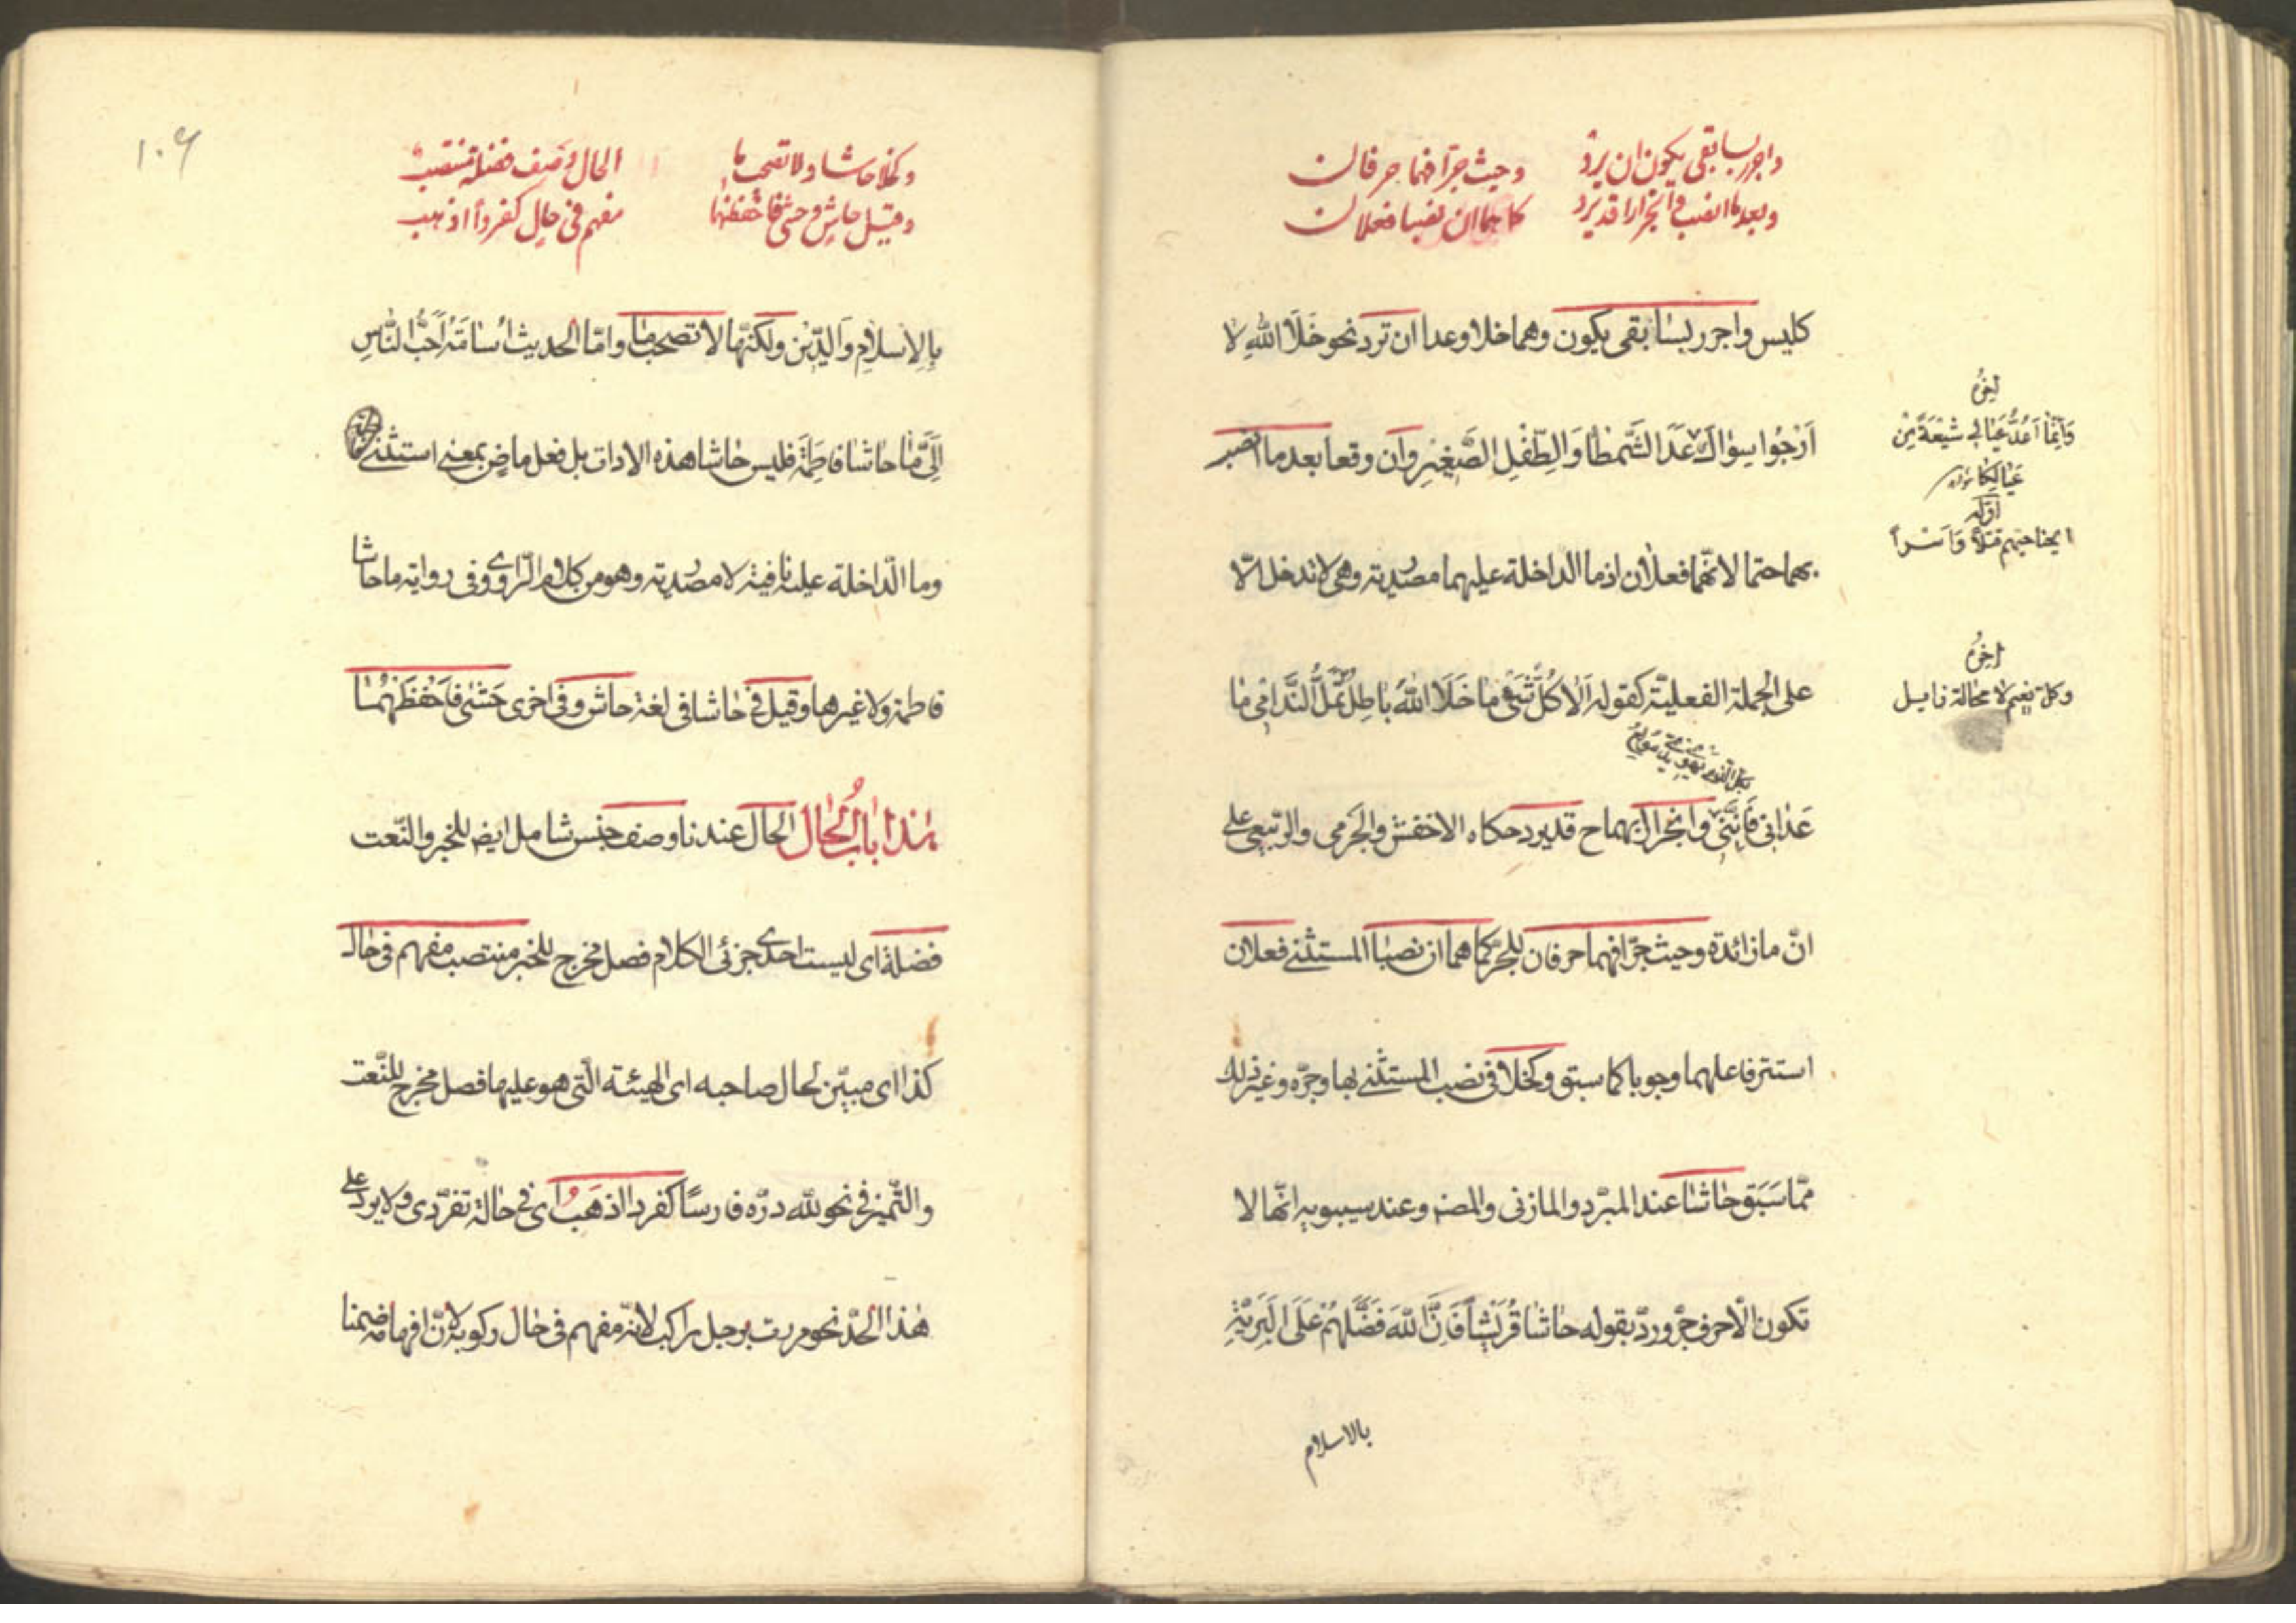 واجرر بسابقي يكون ان ترد    وبعد ما انصب وانجرار قد يرد
وحيث جرا فهما حرفان    كما هما ان نصبا فعلان
كليس واجرر بسابقى يكون وهما خلا وعدا ان ترد نحو خَلَا اللهِ لا
اَرْجُوا سِوٰاكَ عَدَا الشَّمطٰاءِ وَالطِّفْلِ الصَّغِيْرِ وان وقعا بعد ما انصب
بهما حتما لانّهما فعلان اذ ما الداخلة عليهما مصدرية وهى لا تدخل الّا
على الجملة الفعليّة كقوله اَلٰا كُلُّ شَىْءٍ مٰا خَلَا اللهَ بٰاطِلُ تُمَلُّ النَّدٰامٰى مٰا
عَدٰانِى فَاِنَّنِى وانجرار بهما ح قد يرد حكاه الاخفش والجَرمى والربعى على
انّ ما زائدة وحيث جرّا فهما حرفان للجرّ كما هما ان نصبٰا المستثنى فعلان
استتر فاعلهما وجوبا كما سبق وكخلا فى نصب المستثنى بها وجرّه وغير ذلك
ممّا سَبَق حٰاشٰا عند المبرّد والمازنى والمصنف وعند سيبويه انّها لا
تكون الّا حرف جرّ وردّ بقوله حٰاشٰا قُرَيْشًا فَاِنَّ اللهَ فَضَّلَهُمْ عَلَى الْبَرِيَّةِ
بالاسلام
اخرهُ
وَاِنَّمٰا اَعُدُّ عِيٰالِى شُعْبَةً مِنْ
عِيٰالِكٰا
اوّله
ابحنا حيهم قتلا وَاَسْراً
اخرهُ
وكل نعيم لا محالة زايل
بكل الذى يهوى نديمى مولع
١٠٦
وكخلا حاشا ولا تصحب ما    وقيل حاش وحشى فاحفظهما
الحال وصف فضلة منتصب    مفهم فى حال كفردا اذهب
بِالاِسلَامِ وَالدِّيْنِ ولكنّها لا تصحب مٰا وامّا الحديث اُسٰامَةُ اَحَبُّ النّٰاسِ
اِلَىَّ مٰا حٰاشٰا فٰاطِمَةَ فليس حٰاشا هذه الادات بل فعل ماض بمعنى استثنى
وما الدّاخلة عليه نافية لا مصدرية وهو من كلام الرّاوى وفى رواية ما حاشا
فاطمة ولا غيرها وقيل فى حٰاشا فى لغة حاش وفى اخرى حَشٰى فَاحْفَظْهُمٰا
هٰذا بابُ الحٰال الحال عندنا وصف جنس شامل ايض للخبر والنّعت
فضلة اى ليست احدى جزئى الكلام فصل مخرج للخبر منتصب مفهم فى حال
كذا اى مبيّن لحال صاحبه اى الهيئة الّتى هو عليها فصل مخرج للنّعت
والتّميز فى نحو لله درّه فارسًا كفردا اذهَبُ اى فى حالة تفرّدى ولا يرد على
هٰذا الحدّ نحو مررت برجل راكب لانّه مفهم فى حٰال ركوبه لانّ افهامه ضمنا